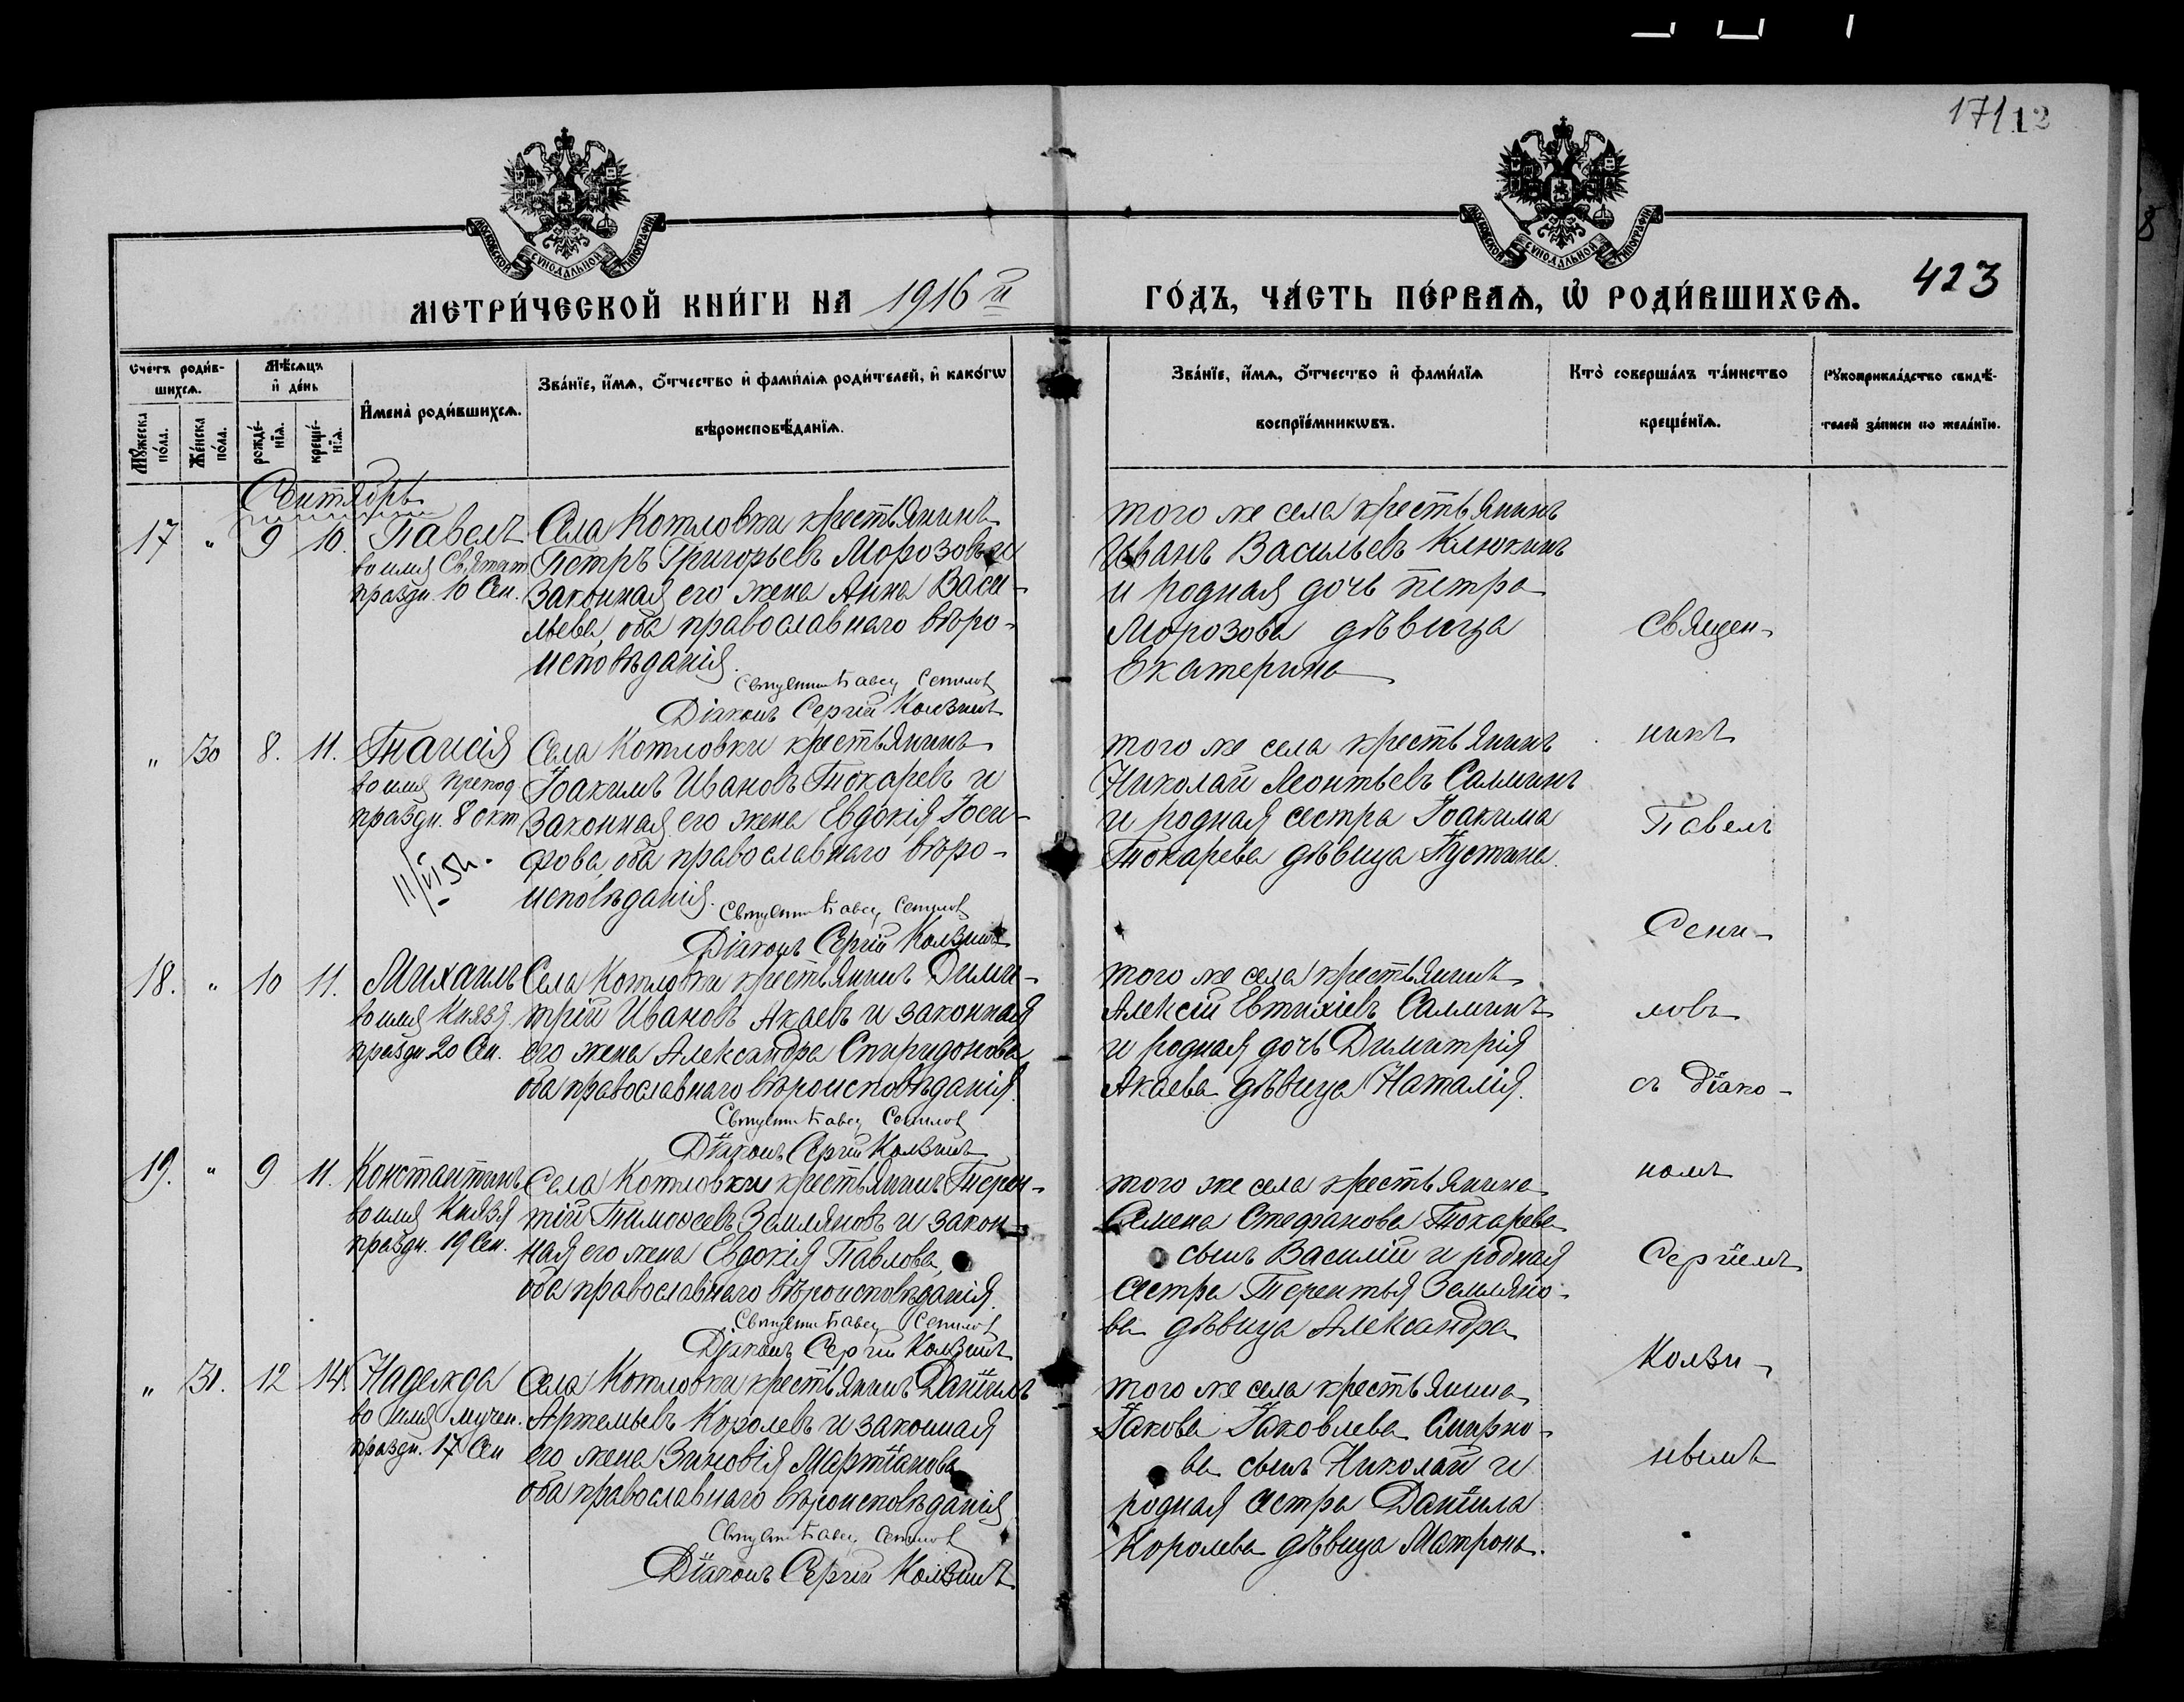 171 12
МОСКОВСКОЙ СУНОДАЛЬНОЙ ТИПОГРАФІИ
МОСКОВСКОЙ СУНОДАЛЬНОЙ ТИПОГРАФІИ
423
МЕТРИ́ЧЕСКОЙ КНИ́ГИ НА 1916 й ГО́ДЪ, ЧА́СТЬ ПЕ́РВАѦ, Ѡ҆ РОДИ́ВШИХСѦ.
Сче́тъ роди́вшихсѧ.
Мꙋ́жеска по́ла.
Же́нска по́ла.
Мѣ́сѧцъ и҆ де́нь
рожде́нїѧ.
креще́нїѧ.
И҆мена̀ роди́вшихсѧ.
Зва́нїе, и҆́мѧ, ѻ҆́тчество и҆ фами́лїѧ роди́телей, и҆ како́гѡ
вѣроисповѣ́данїѧ.
Зва́нїе, и҆́мѧ, ѻ҆́тчество и҆ фами́лїѧ
воспрїе́мникѡвъ.
Кто̀ соверша́лъ та́инство
креще́нїѧ.
Рꙋкоприкла́дство свидѣ́-
телей за́писи по жела́нїю.
Сентябрь
17 " 9 10. Павелъ
во имя Святит
праздн. 10 Сен.
Села Котловки крестьянинъ
Петръ Григорьевъ Морозовъ и
законная его жена Анна Васи-
льева, оба православнаго вѣро-
исповѣданія.
Священни Павел Сенилов
Діаконъ Сергій Колзинъ
того же села крестьянинъ
Иванъ Васильевъ Клюкинъ
и родная дочь Петра
Морозова дѣвица
Екатерина
" 30 8. 11. Таисія
во имя препод
праздн. 8 окт
Села Котловки крестьянинъ
Іоакимъ Ивановъ Токаревъ и
законная его жена Евдокія Іоси-
фова, оба православнаго вѣро-
исповѣданія.
Священни Павел Сенилов
Діаконъ Сергій Колзинъ
того же села крестьянинъ
Николай Леонтьевъ Салминъ
и родная сестра Іоакима
Токарева дѣвица Іустина.
18. " 10 11. Михаилъ
во имя Князя
праздн 20 Сен.
Села Котловки крестьянинъ Дими-
трій Ивановъ Акаевъ и законная
его жена Александра Спиридонова
оба православнаго вѣроисповѣданія.
Священни Павел Сенилов
Діаконъ Сергій Колзинъ
того же села крестьянинъ
Алексій Евтихіевъ Салминъ
и родная дочь Димитрія
Акаева дѣвица Наталія.
19. " 9 11. Константинъ
во имя Князя
праздн. 19 Сен.
Села Котловки крестьянинъ Терен-
тій Тимоѳеевъ Земляновъ и закон-
ная его жена Евдокія Павлова,
оба православнаго вѣроисповѣданія.
Священни Павел Сенилов
Діаконъ Сергій Колзинъ
того же села крестьянина
Семена Стефанова Токарева
сынъ Василій и родная
сестра Терентья Земляно-
ва дѣвица Александра
" 31. 12 14. Надежда
во имя мучен.
праздн. 17 Сен
Села Котловки крестьянинъ Даніилъ
Артемьевъ Королевъ и законная
его жена Зиновія Мартіанова
оба православнаго вѣроисповѣданія
Священни Павел Сенилов
Діаконъ Сергій Колзинъ
того же села крестьянина
Іакова Іаковлева Смирно-
ва сынъ Николай и
родная сестра Даніила
Королева дѣвица Матрона.
Священ-
никъ
Павелъ
Сени-
ловъ
съ діако-
номъ
Сергіемъ
Колзи-
нымъ